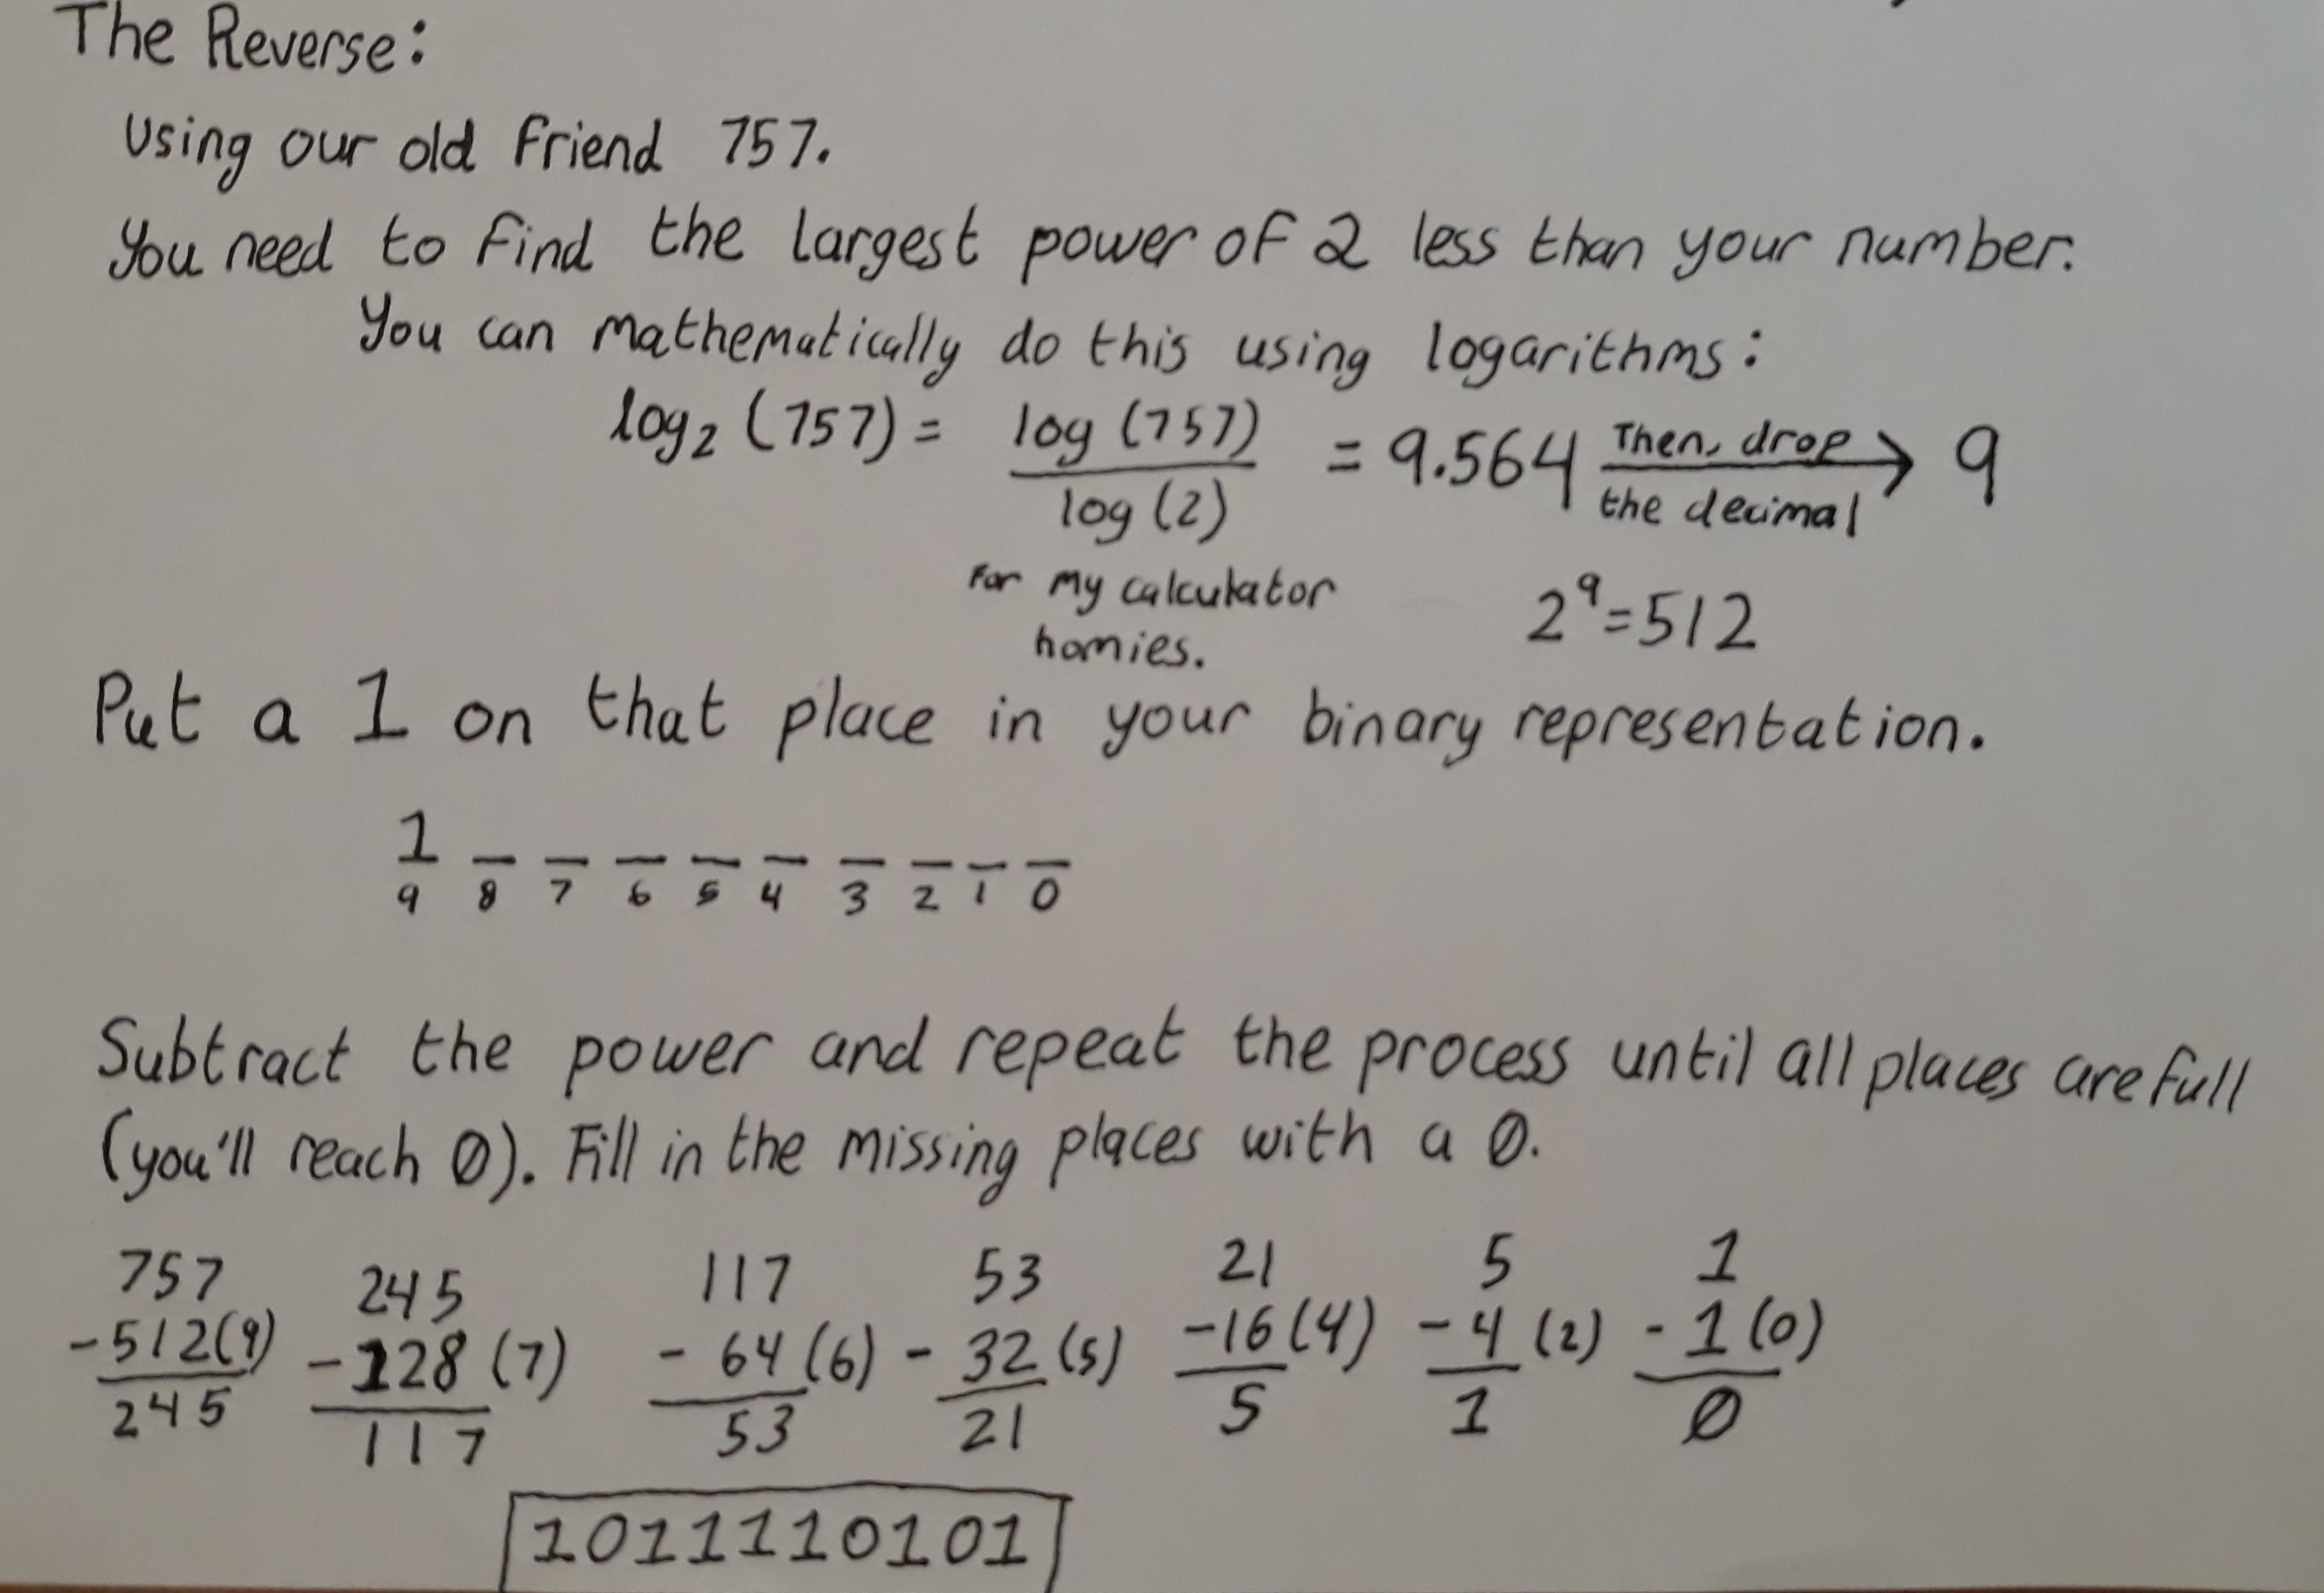 The Reverse:
Using our old friend 757.
You need to find the largest power of 2 less than your number.
You can mathematically do this using logarithms:
log₂ (757) = log (757) / log (2) = 9.564 Then, drop the decimal → 9
For my calculator
homies.
2⁹=512
Put a 1 on that place in your binary representation.
1 _ _ _ _ _ _ _ _ _
9 8 7 6 5 4 3 2 1 0
Subtract the power and repeat the process until all places are full
(you'll reach 0). Fill in the missing places with a 0.
757 245 117 53 21 5 1
-512(9) -128 (7) - 64 (6) - 32 (5) -16 (4) -4 (2) - 1 (0)
245 117 53 21 5 1 0
1011110101